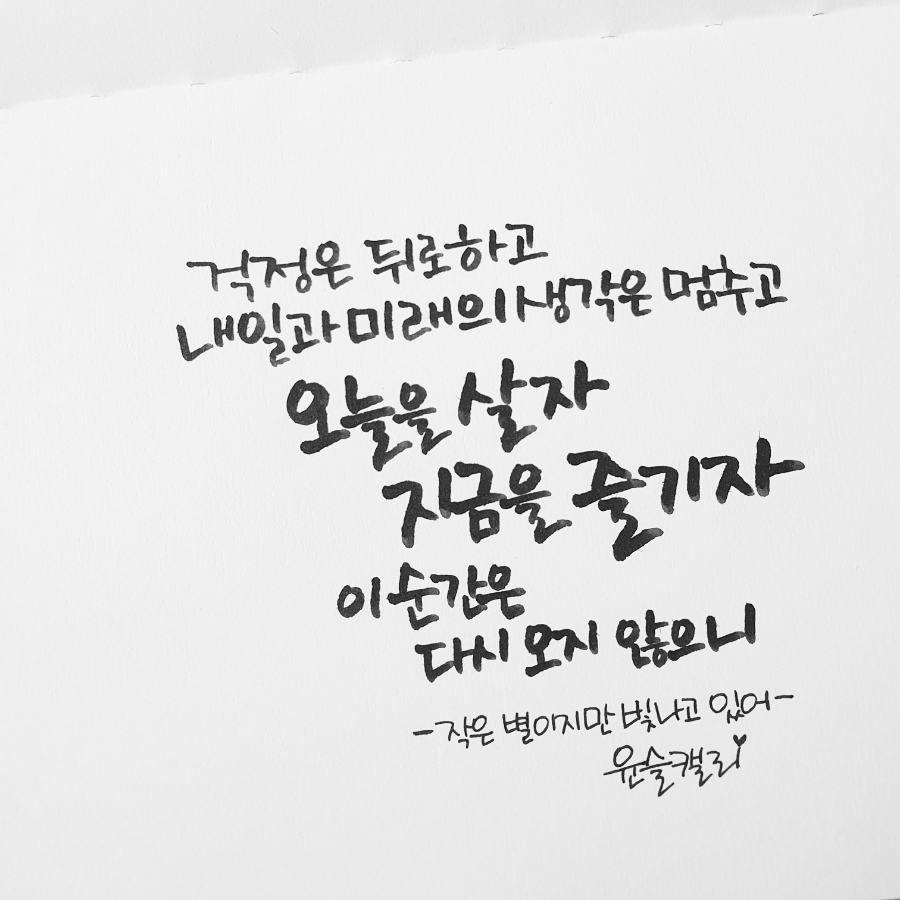 걱정은 뒤로하고
내일과 미래의 생각은 멈추고
오늘을 살자
지금을 즐기자
이 순간은
다시 오지 않으니
-작은 별이지만 빛나고 있어-
윤슬캘리